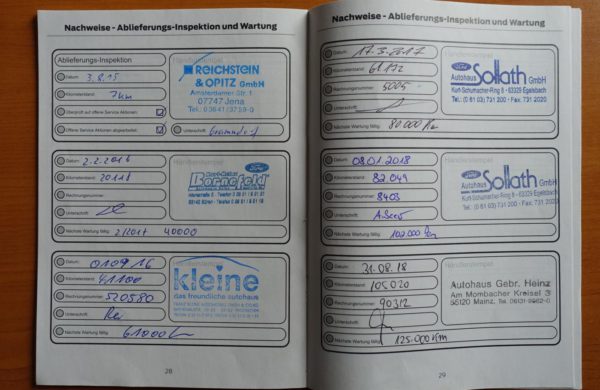 Nachweise - Ablieferungs-Inspektion und Wartung
Ablieferungs-Inspektion
Datum: 3.8.15
Kilometerstand: 7km
Überprüft auf offene Service Aktionen:
Offene Service Aktionen abgearbeitet:
REICHSTEIN
& OPITZ GmbH
Amsterdamer Str. 1
07747 Jena
Unterschrift:
Datum: 2.2.2016
Kilometerstand: 20118
Rechnungsnummer:
Unterschrift:
Nächste Wartung fällig: 40000
Händlerstempel
Ford
Bornefeld
Datum: 01.09.16
Kilometerstand: 41100
Rechnungsnummer: 520580
Unterschrift:
Nächste Wartung fällig: 61000
kleine
das freundliche autohaus
28
Nachweise - Ablieferungs-Inspektion und Wartung
Datum: 17.3.2017
Kilometerstand: 61172
Rechnungsnummer: 5005
Unterschrift:
Nächste Wartung fällig: 80000 Km
Ford
Autohaus Sollath GmbH
Kurt-Schumacher-Ring 8 · 63329 Egelsbach
Tel.: (0 61 03) 731 200 · Fax: 731 2020
Datum: 08.01.2018
Kilometerstand: 82.049
Rechnungsnummer: 8403
Unterschrift:
Nächste Wartung fällig: 102.000 Km
Händlerstempel
Ford
Autohaus Sollath GmbH
Kurt-Schumacher-Ring 8 · 63329 Egelsbach
Tel.: (0 61 03) 731 200 · Fax: 731 2020
Datum: 31.08.18
Kilometerstand: 105020
Rechnungsnummer: 90312
Unterschrift:
Nächste Wartung fällig: 125.000 Km
Händlerstempel
Autohaus Gebr. Heinz
Am Mombacher Kreisel 3
55120 Mainz, Tel. 06131-9962-0
29